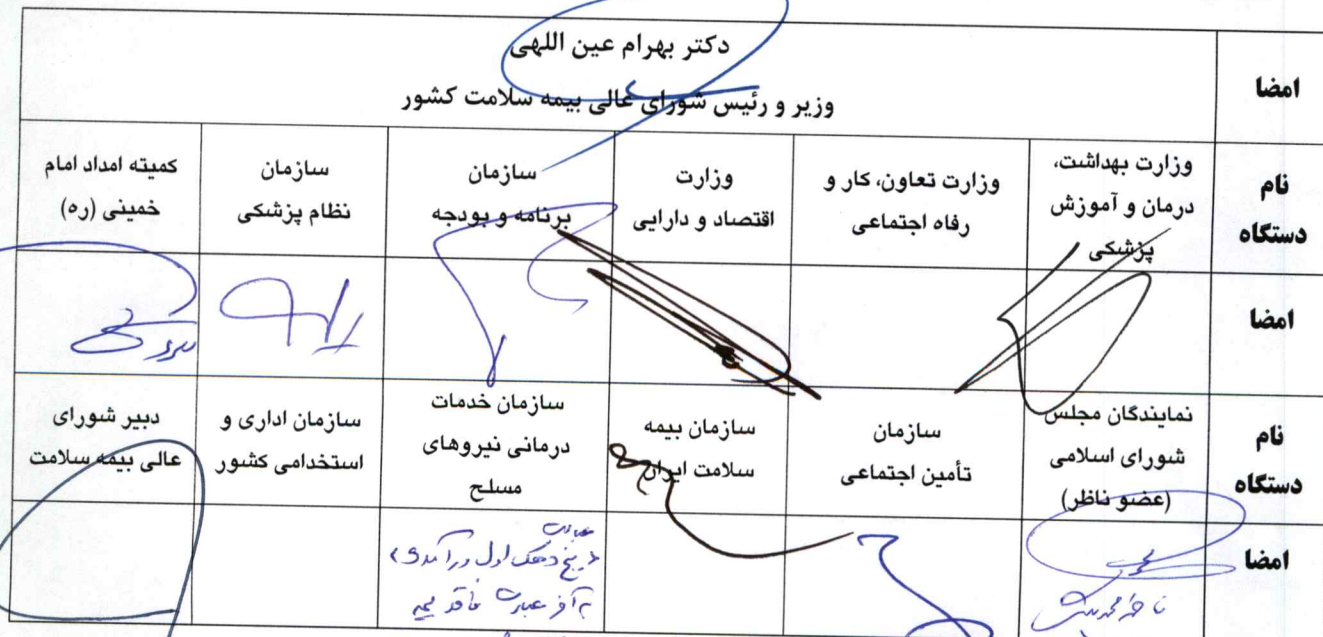 امضا
دکتر بهرام عین اللهی
وزیر و رئیس شورای عالی بیمه سلامت کشور
نام دستگاه
وزارت بهداشت،
درمان و آموزش
پزشکی
وزارت تعاون، کار و
رفاه اجتماعی
وزارت
اقتصاد و دارایی
سازمان
برنامه و بودجه
سازمان
نظام پزشکی
کمیته امداد امام
خمینی (ره)
امضا
نام دستگاه
نمایندگان مجلس
شورای اسلامی
(عضو ناظر)
سازمان
تأمین اجتماعی
سازمان بیمه
سلامت ایران
سازمان خدمات
درمانی نیروهای
مسلح
سازمان اداری و
استخدامی کشور
دبیر شورای
عالی بیمه سلامت
امضا
عبارت
(پنج دهک اول درآمدی)
به آخر عبارت فاقد بیمه